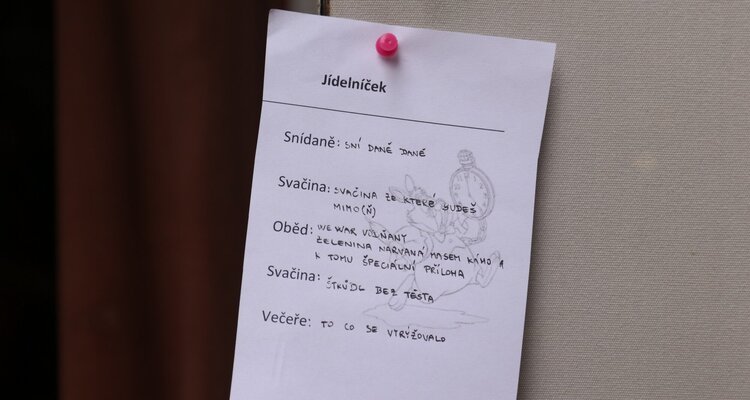 Jídelníček
Snídaně: SNÍ DANĚ DANĚ
Svačina: SVAČINA ZE KTERÉ BUDEŠ
MIMO(Ň)
Oběd: WE WAR VLŇANY
ZELENINA NARVANÁ MASEM KÁMO A
K TOMU ŠPECIÁLNÍ PŘÍLOHA
Svačina: ŠTRŮDL BEZ TĚSTA
Večeře: TO CO SE VYRÝŽOVALO